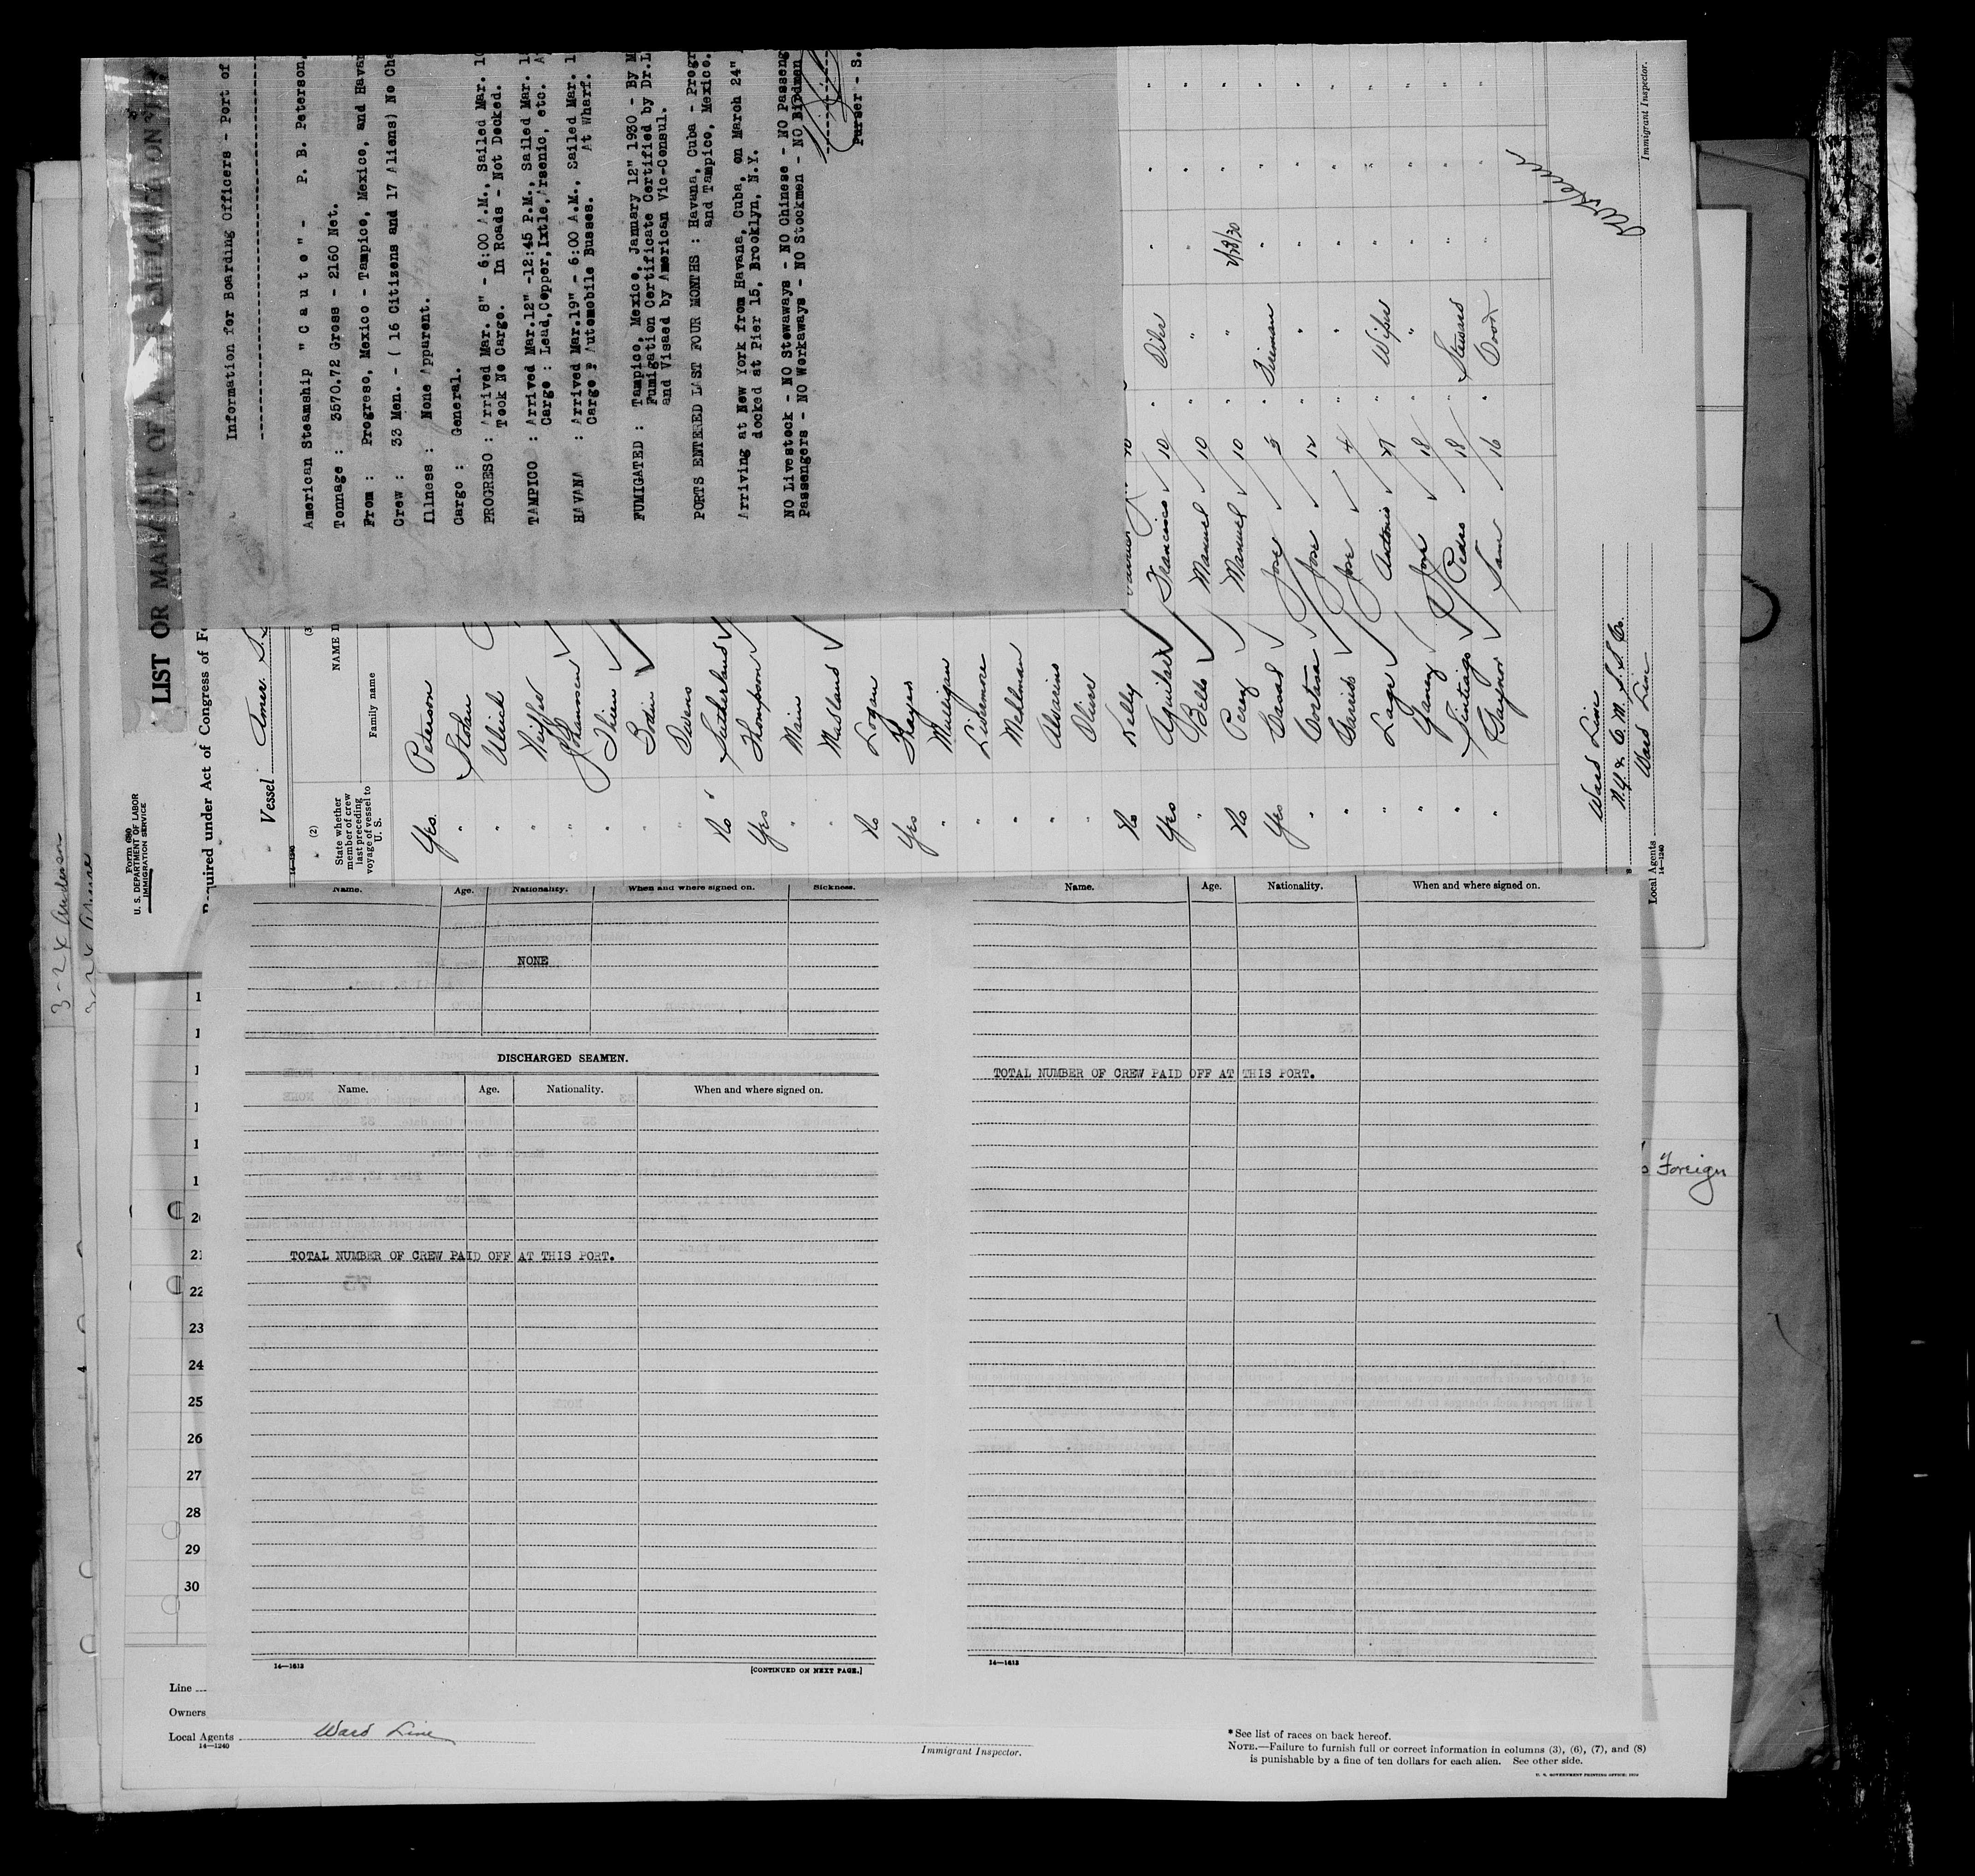 Information for Boarding Officers - Port of
American Steamship " C a u t o " - P. B. Peterson,
Tonnage : 3570.72 Gross - 2160 Net.
From : Progreso, Mexico - Tampico, Mexico, and Havan
Crew : 33 Men. - ( 16 Citizens and 17 Aliens) No Ch
Illness : None Apparent.
Cargo : General.
PROGRESO : Arrived Mar. 8" - 6:00 A.M., Sailed Mar. 1
Took No Cargo. In Roads - Not Docked.
TAMPICO : Arrived Mar.12" -12:45 P.M., Sailed Mar. 1
Cargo : Lead,Copper,Ixtle,Arsenic, etc. A
HAVANA : Arrived Mar.19" - 6:00 A.M., Sailed Mar. 1
Cargo Automobile Busses. At Wharf.
FUMIGATED : Tampico, Mexico, January 12" 1930 - By M
Fumigation Certificate Certified by Dr.L
and Visaed by American Vic-Consul.
PORTS ENTERED LAST FOUR MONTHS : Havana, Cuba - Progr
and Tampico, Mexico.
Arriving at New York from Havana, Cuba, on March 24"
docked at Pier 15, Brooklyn, N.Y.
NO Livestock - NO Stowaways - NO Chinese - NO Passeng
Passengers - NO Workaways - NO Stockmen - NO Birdmen
Purser - S.
Form 680
U. S. DEPARTMENT OF LABOR
IMMIGRATION SERVICE
LIST OR MANIFEST OF ALIENS EMPLOYED ON
Required under Act of Congress of F
Vessel Amer. S.
(2) (3)
State whether member of crew last preceding voyage of vessel to U. S.
NAME
Family name
Yes. Peterson
" Stolan
" Ulrich
"
" Johannsen
" Thien
" Bodin
" Owens
No Sutherland
Yes Thompson
" Main
" Masland
No Logan
Yes Thayer
" Mulligan
" Livermore
" Mehlman
" Alvarino
" Olivar
No Kelly
Yes Aguilar Francisco 10 " Oiler
" Bello Manuel 10 " "
No Perez Manuel 10 " " 2/28/30
Yes Casal Jose " Fireman
" Cortina Jose 12 " "
" Garrido Jose 4 " "
" Lage Antonio " Wiper
" Yanez Jose 18 " "
" Santiago Pedro 18 " Steward
" Gaynor Sam 16 " Cook
Ward Line
N.Y. & C. M. S. S. Co.
Local Agents Ward Line
14—1240
Immigrant Inspector.
3-24 Anderson
Name. Age. Nationality. When and where signed on. Sickness.
NONE
DISCHARGED SEAMEN.
Name. Age. Nationality. When and where signed on.
TOTAL NUMBER OF CREW PAID OFF AT THIS PORT.
14—1613 [CONTINUED ON NEXT PAGE.]
Name. Age. Nationality. When and where signed on.
TOTAL NUMBER OF CREW PAID OFF AT THIS PORT.
14—1613
Foreign
21
22
23
24
25
26
27
28
29
30
Line
Owners
Local Agents Ward Line
14—1240
Immigrant Inspector.
*See list of races on back hereof.
NOTE.—Failure to furnish full or correct information in columns (3), (6), (7), and (8)
is punishable by a fine of ten dollars for each alien. See other side.